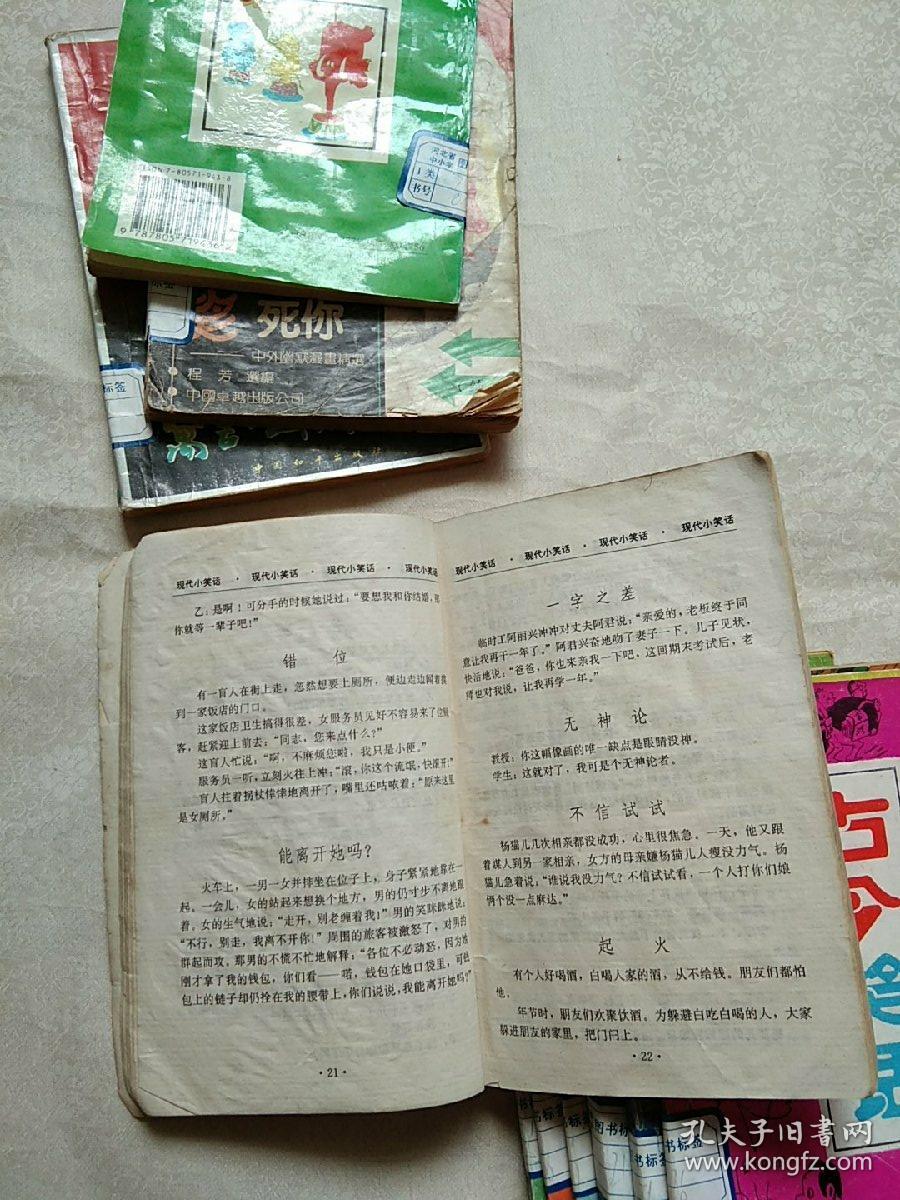 河北省
中小学
书号
9 787805 719436
死你
中外幽默漫畫精选
程 芳 選編
中國卓越出版公司
标签
中国和平出版社
现代小笑话 · 现代小笑话 · 现代小笑话 · 现代小笑话
乙：是啊！可分手的时候她说过：“要想我和你结婚，那
你就等一辈子吧！”
错 位
有一盲人在街上走，忽然想要上厕所，便边走边闻着臭
到一家饭店的门口。
这家饭店卫生搞得很差，女服务员见好不容易来了位顾
客，赶紧迎上前去：“同志，您来点什么？”
这盲人忙说：“啊，不麻烦您啦，我只是小便。”
服务员一听，立刻火往上冲：“滚，你这个流氓，快滚开！”
盲人拄着拐杖悻悻地离开了，嘴里还咕哝着：“原来这里
是女厕所。”
能离开她吗？
火车上，一男一女并排坐在位子上，身子紧紧地靠在一
起。一会儿，女的站起来想换个地方，男的仍寸步不离地跟
着。女的生气地说：“走开，别老缠着我！”男的笑眯眯地说：
“不行，别走，我离不开你！”周围的旅客被激怒了，对男的
群起而攻，那男的不慌不忙地解释：“各位不必动怒，因为她
刚才拿了我的钱包，你们看——喏，钱包在她口袋里，可钱
包上的链子却仍拴在我的腰带上，你们说说，我能离开她吗？”
·21·
现代小笑话 · 现代小笑话 · 现代小笑话 · 现代小笑话
一字之差
临时工阿丽兴冲冲对丈夫阿君说：“亲爱的，老板终于同
意让我再干一年了。”阿君兴奋地吻了妻子一下。儿子见状，
快活地说：“爸爸，你也来亲我一下吧，这回期末考试后，老
师也对我说，让我再学一年。”
无 神 论
教授：你这幅像画的唯一缺点是眼睛没神。
学生：这就对了，我可是个无神论者。
不信试试
杨猫儿几次相亲都没成功，心里很焦急。一天，他又跟
着媒人到另一家相亲，女方的母亲嫌杨猫儿人瘦没力气。杨
猫儿急着说：“谁说我没力气？不信试试看，一个人打你们娘
俩个没一点麻达。”
起 火
有个人好喝酒，白喝人家的酒，从不给钱。朋友们都怕
他。
年节时，朋友们欢聚饮酒。为躲避白吃白喝的人，大家
躲进朋友的家里，把门闩上。
·22·
古
今
书标签
孔夫子旧书网
www.kongfz.com